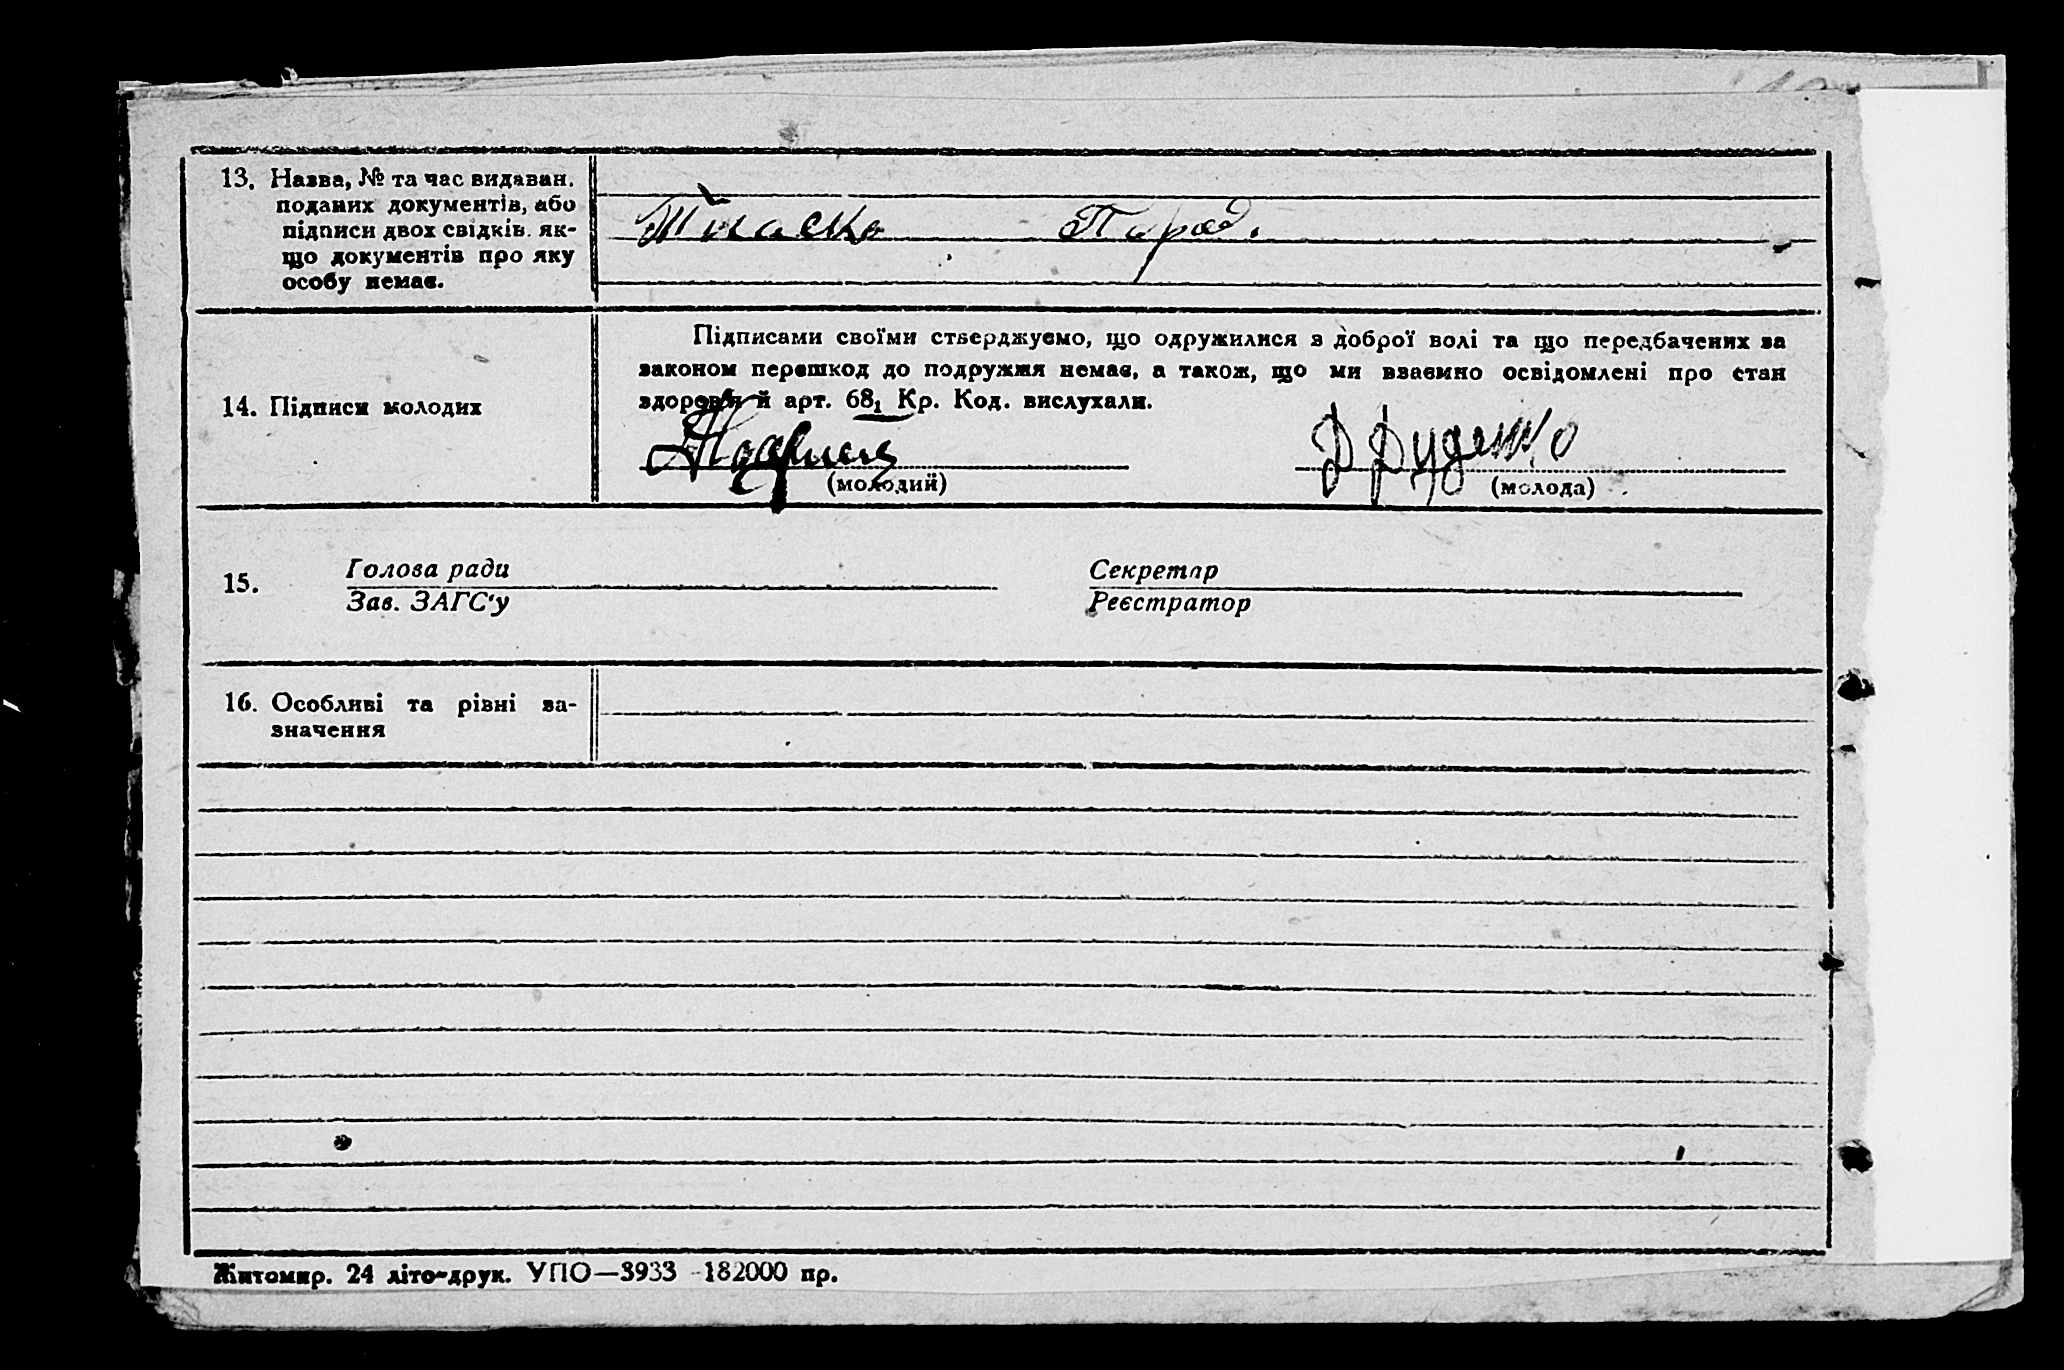 13. Назва, № та час видаван.
поданих документів, або
підписи двох свідків. як-
що документів про яку
особу немає.
14. Підписи молодих
Підписами своїми стверджуємо, що одружилися з доброї волі та що передбачених за
законом перешкод до подружжя немає, а також, що ми взаємно освідомлені про стан
здоров'я й арт. 68₁ Кр. Код. вислухали.
Д Руденко
(молодий) (молода)
15. Голова ради Секретар
Зав. ЗАГС'у Реєстратор
16. Особливі та рівні за-
значення
Житомир. 24 літо-друк. УПО—3933 -182000 пр.